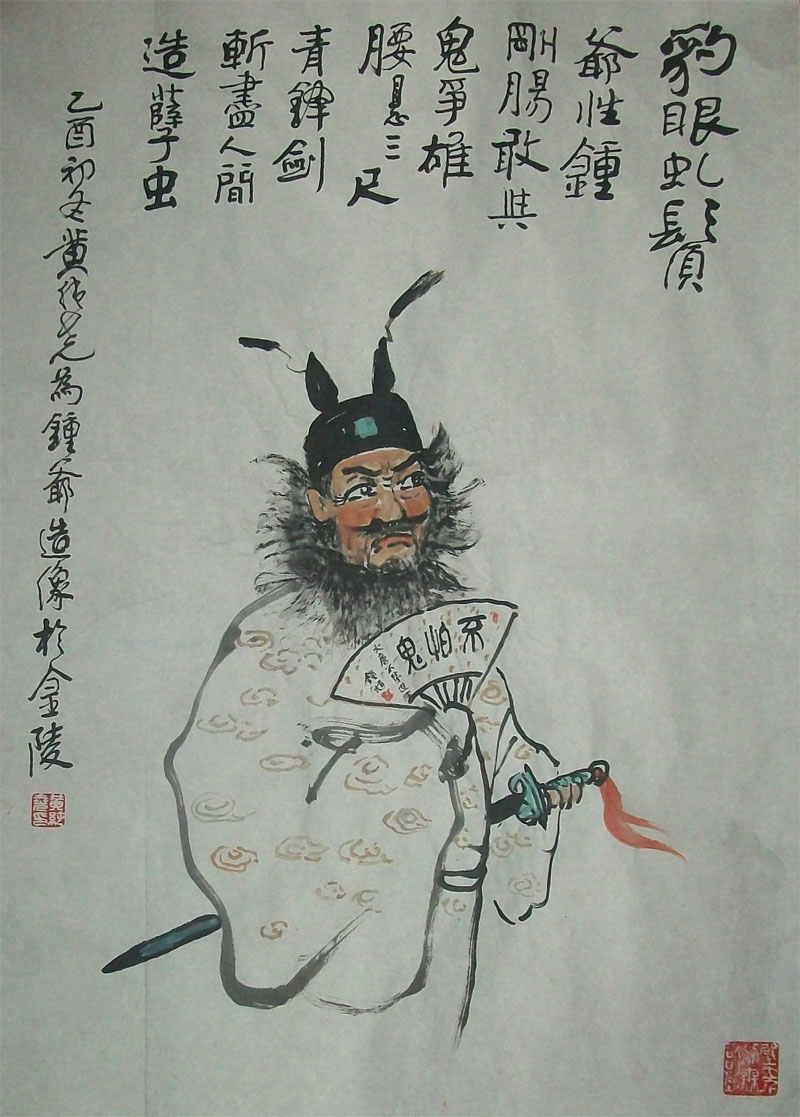 豹眼虬鬚
爺性鍾
剛腸敢與
鬼爭雄
腰悬三尺
青鋒劍
斬盡人間
造孽虫
乙酉初冬黄
為鍾爺造像於金陵
不怕鬼